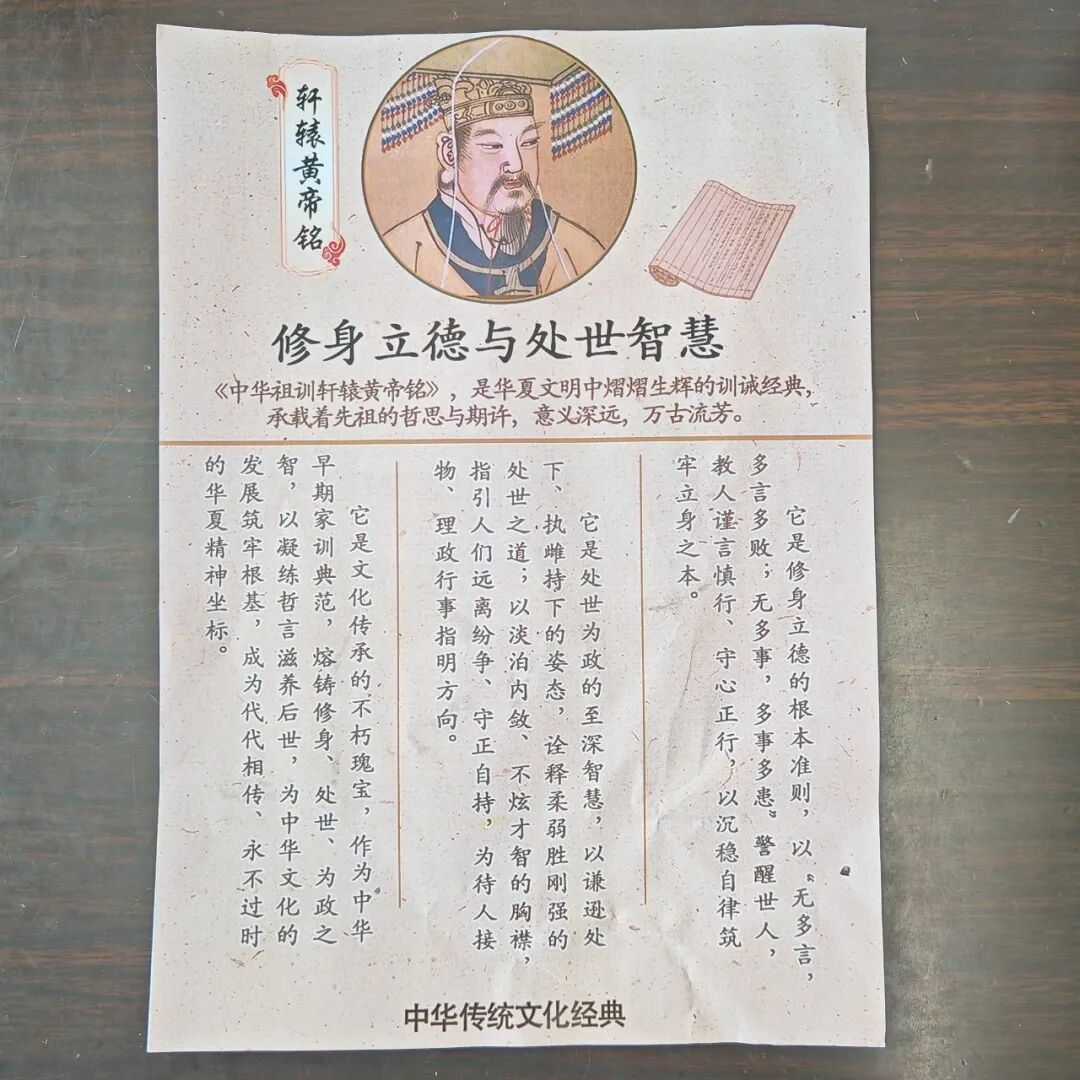 轩辕黄帝铭
修身立德与处世智慧
《中华祖训轩辕黄帝铭》，是华夏文明中熠熠生辉的训诫经典，
承载着先祖的哲思与期许，意义深远，万古流芳。
它是修身立德的根本准则，以“无多言，
多言多败；无多事，多事多患”警醒世人，
教人谨言慎行、守心正行，以沉稳自律筑
牢立身之本。
它是处世为政的至深智慧，以谦逊处
下、执雌持下的姿态，诠释柔弱胜刚强的
处世之道；以淡泊内敛、不炫才智的胸襟，
指引人们远离纷争、守正自持，为待人接
物、理政行事指明方向。
它是文化传承的不朽瑰宝，作为中华
早期家训典范，熔铸修身、处世、为政之
智，以凝练哲言滋养后世，为中华文化的
发展筑牢根基，成为代代相传、永不过时
的华夏精神坐标。
中华传统文化经典